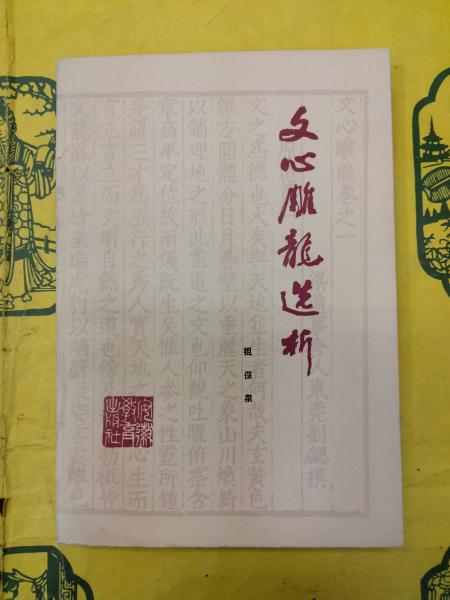 文心雕龍选析
祖保泉
安徽教育出版社
文心雕龍卷之一
梁通事舍人東莞劉勰撰
文之爲德也大矣與天地並生者何哉夫玄黃色
雜方圓體分日月疊璧以垂麗天之象山川煥綺
以鋪理地之形此蓋道之文也仰觀吐曜俯察含
章高卑定位故兩儀既生矣惟人參之性靈所鍾
是謂三才爲五行之秀人實天地之心生而
言立言立而文明自然之道也傍及萬品動植皆
文龍鳳以藻繪呈瑞虎豹以炳蔚凝姿雲霞雕色